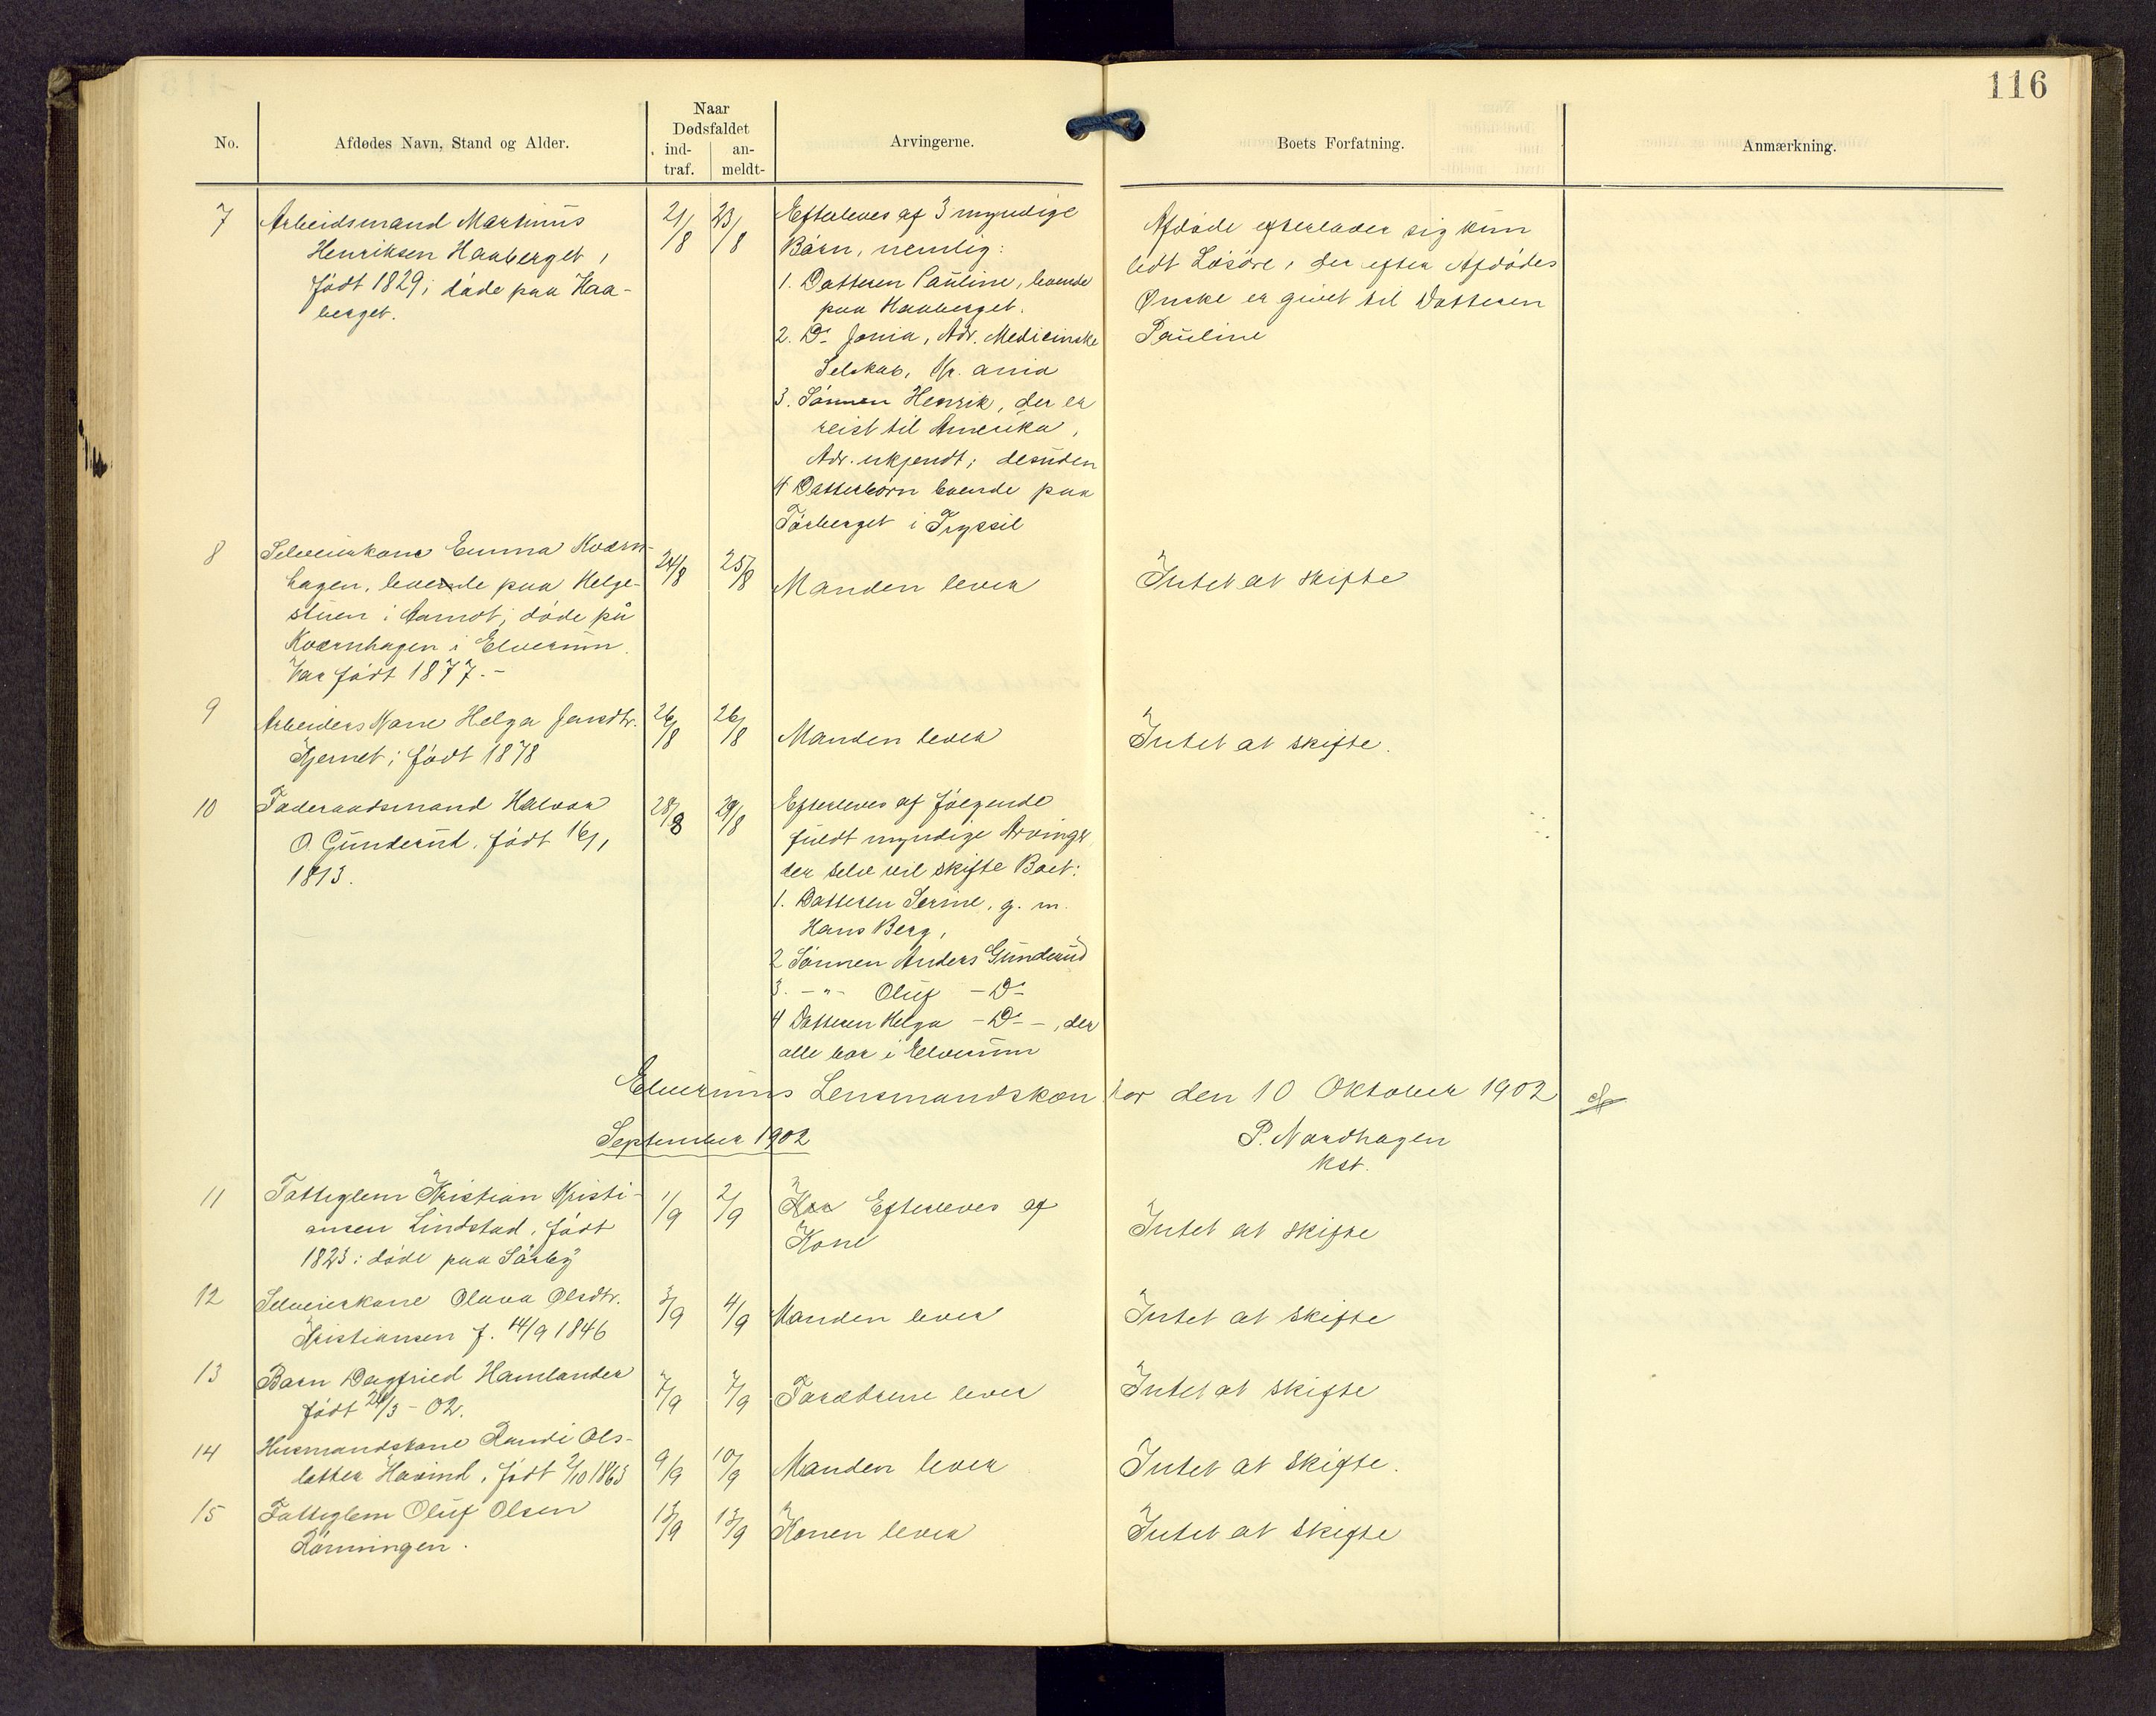 116
No.
Afdødes Navn, Stand og Alder.
Naar
Dødsfaldet
ind-
traf.
an-
meldt-
Arvingerne.
Boets Forfatning.
Anmærkning.
7
Arbeidsmand Martinus
Henriksen Haaberget,
født 1829; døde paa Haa-
berget.
21/8
23/8
Efterleves af 3 myndige
Børn, nemlig:
1. Datteren Pauline, boende
paa Haaberget.
2. Do Jonia, Adr. Medicinske
Selskab, Kr.ania
3. Sønnen Henrik, der er
reist til Amerika,
Adr. ukjendt; desuden
4 Datterbørn boende paa
Törberget i Trysil
Afdøde efterlader sig kun
lidt Løsøre, der efter Afdødes
Ønske er givet til Datteren
Pauline
8
Selveierkone Emma Kværn-
hagen, boende paa Helge-
stuen i Aamot; døde på
Kværnhagen i Elverum.
Var født 1877.-
24/8
25/8
Manden lever
Intet at skifte
9
Arbeiders Kone Helga Jensdtr.
Kjernet; født 1878
26/8
26/8
Manden lever
Intet at skifte.
10
Føderaadsmand Halvor
O. Gunderud, født 16/1
1813.
28/8
29/8
Efterleves af følgende
fuldt myndige Arvinger
der selv vil skifte Boet:
1. Datteren Serine, g. m.
Hans Berg,
2 Sønnen Anders Gunderud
3. -"- Oluf - Do
4 Datteren Helga - Do -, der
alle bor i Elverum
Elverums Lensmandskontor den 10 Oktober 1902
P. Nordhagen
Kst.
September 1902
11
Fattiglem Kristian Kristi-
ansen Lindstad, født
1823; døde paa Sørby
1/9
2/9
Efterleves af
Kone
Intet at skifte
12
Selveierkone Olava Olsdtr.
Kristiansen f. 14/9 1846
3/9
4/9
Manden lever
Intet at skifte
13
Barn Dagfried Hamlander
født 24/3 - 02.
7/9
7/9
Forældrene lever
Intet at skifte
14
Husmandskone Randi Ols-
datter Havind, født 2/10 1863
9/9
10/9
Manden lever
Intet at skifte.
15
Fattiglem Oluf Olsen
Rønningen.
13/9
13/9
Konen lever
Intet at skifte